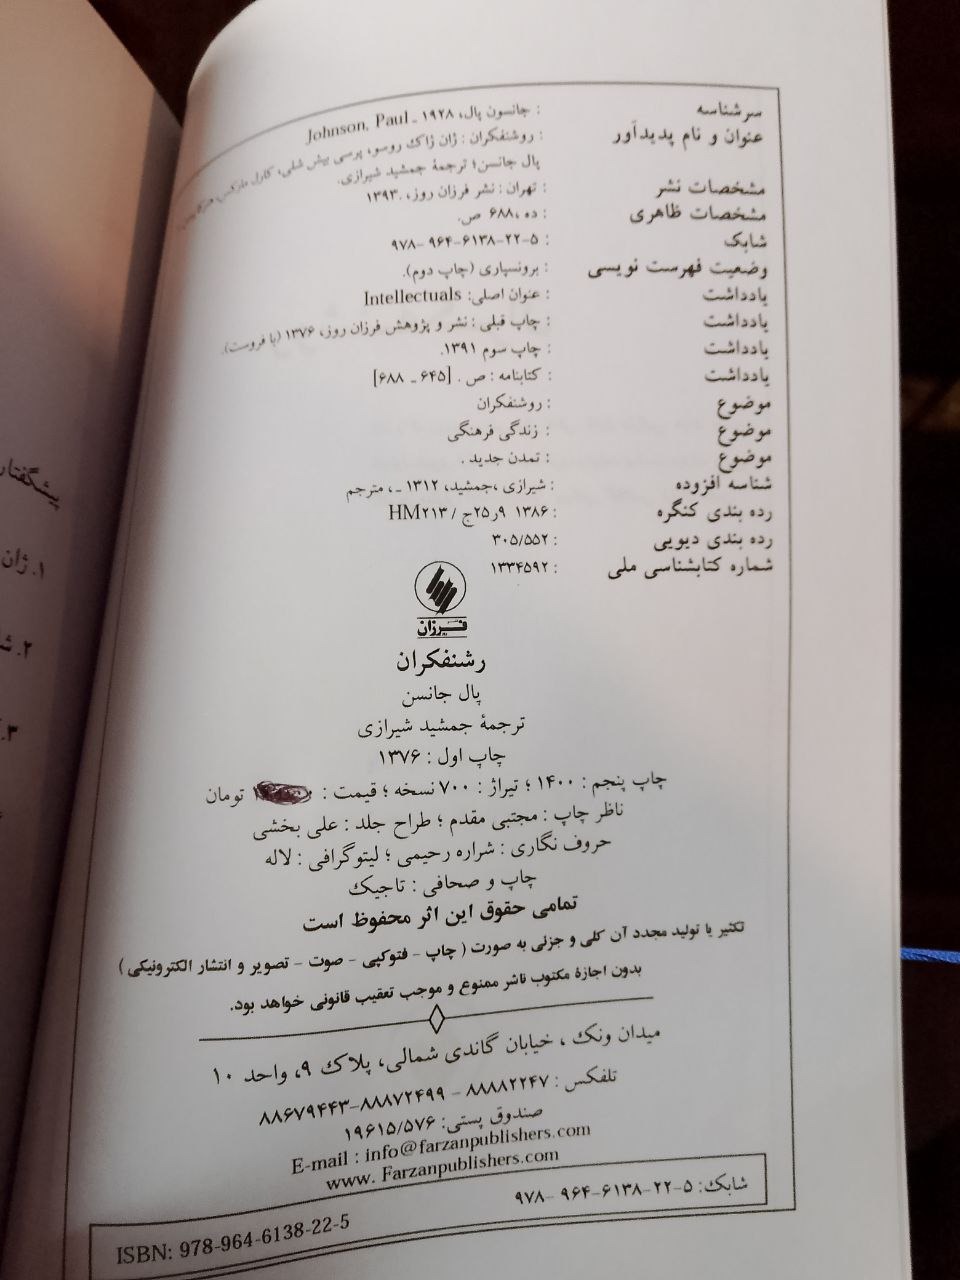 سرشناسه : جانسون پال، ۱۹۲۸ ـ Johnson, Paul
عنوان و نام پدیدآور : روشنفکران : ژان ژاک روسو، پرسی بیش شلی، کارل مارکس،
پال جانسن؛ ترجمۀ جمشید شیرازی.
مشخصات نشر : تهران : نشر فرزان روز، ۱۳۹۳.
مشخصات ظاهری : ده ،۶۸۸ ص.
شابک : ۵-۲۲-۶۱۳۸-۹۶۴ -۹۷۸
وضعیت فهرست نویسی : برونسپاری (چاپ دوم).
یادداشت : عنوان اصلی: Intellectuals
یادداشت : چاپ قبلی : نشر و پژوهش فرزان روز، ۱۳۷۶ (با فروست).
یادداشت : چاپ سوم ۱۳۹۱.
یادداشت : کتابنامه : ص . [۶۴۵ ـ ۶۸۸]
موضوع : روشنفکران
موضوع : زندگی فرهنگی
موضوع : تمدن جدید .
شناسه افزوده : شیرازی ،جمشید، ۱۳۱۲ ـ، مترجم
رده بندی کنگره : ۱۳۸۶ ۹ر۲۵ج / HM۲۱۳
رده بندی دیویی : ۳۰۵/۵۵۲
شماره کتابشناسی ملی : ۱۳۳۴۵۹۲
فرزان
رشنفکران
پال جانسن
ترجمۀ جمشید شیرازی
چاپ اول : ۱۳۷۶
چاپ پنجم : ۱۴۰۰ ؛ تیراژ : ۷۰۰ نسخه ؛ قیمت : تومان
ناظر چاپ : مجتبی مقدم ؛ طراح جلد : علی بخشی
حروف نگاری : شراره رحیمی ؛ لیتوگرافی : لاله
چاپ و صحافی : تاجیک
تمامی حقوق این اثر محفوظ است
تکثیر یا تولید مجدد آن کلی و جزئی به صورت ( چاپ - فتوکپی - صوت - تصویر و انتشار الکترونیکی )
بدون اجازۀ مکتوب ناشر ممنوع و موجب تعقیب قانونی خواهد بود.
میدان ونک ، خیابان گاندی شمالی، پلاک ۹، واحد ۱۰
تلفکس : ۸۸۸۸۲۲۴۷ - ۸۸۸۷۲۴۹۹-۸۸۶۷۹۴۴۳
صندوق پستی: ۱۹۶۱۵/۵۷۶
E-mail : info@farzanpublishers.com
www. Farzanpublishers.com
شابک: ۵-۲۲-۶۱۳۸-۹۶۴ -۹۷۸
ISBN: 978-964-6138-22-5
پیشگفتار
۱. ژان
۲.
۳.